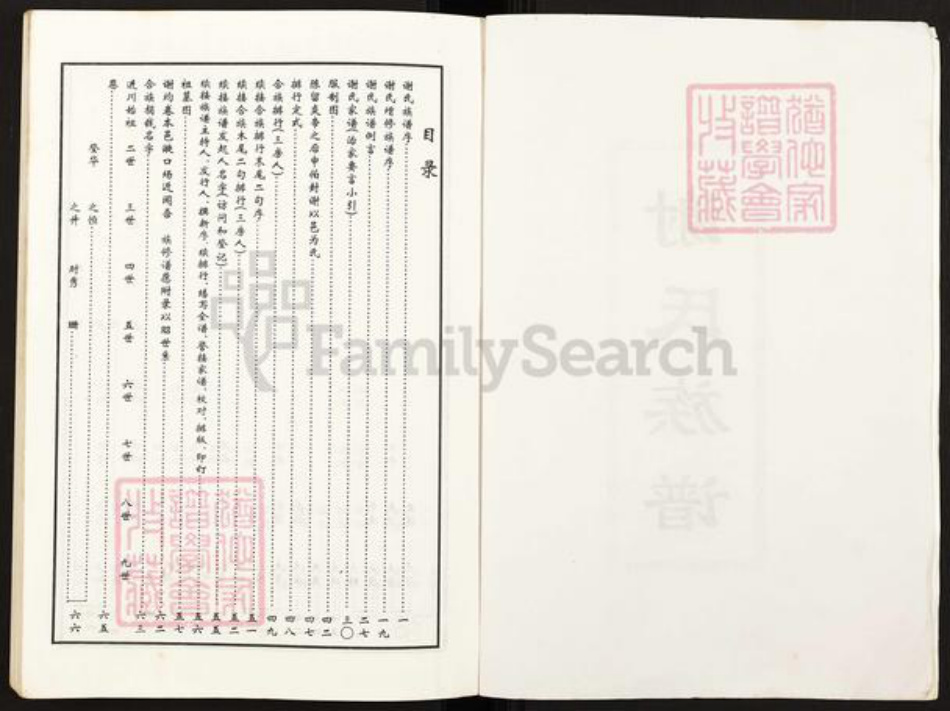 目录
谢氏族谱序 一
谢氏增修族谱序 一九
谢氏族谱例言 二七
谢氏家谱(治家要言小引) 三〇
服制图 四二
陈留炎帝之后申伯封谢以邑为氏 四七
排行定式 四八
合族排行(三房人) 四九
续接合族排行末尾二句序 五一
续接合族末尾二句排行(三房人) 五二
续接族谱发起人名字(访问和登记) 五五
续接族谱主持人、发行人、撰新序、续排行、缮写全谱、誊接家谱、校对、排版、印订 五六
祖墓图 五七
谢均卷本邑 口场进闻吾 族修谱愿附录以昭世系 六二
合族捐钱名字 六三
进川始祖 二世 三世 四世 五世 六世 七世 八世 九世
恩 六五
登华 之恒
之升 时秀 珊 六六
谢氏族谱
猶他家譜學會收藏
猶他家譜學會收藏
FamilySearch